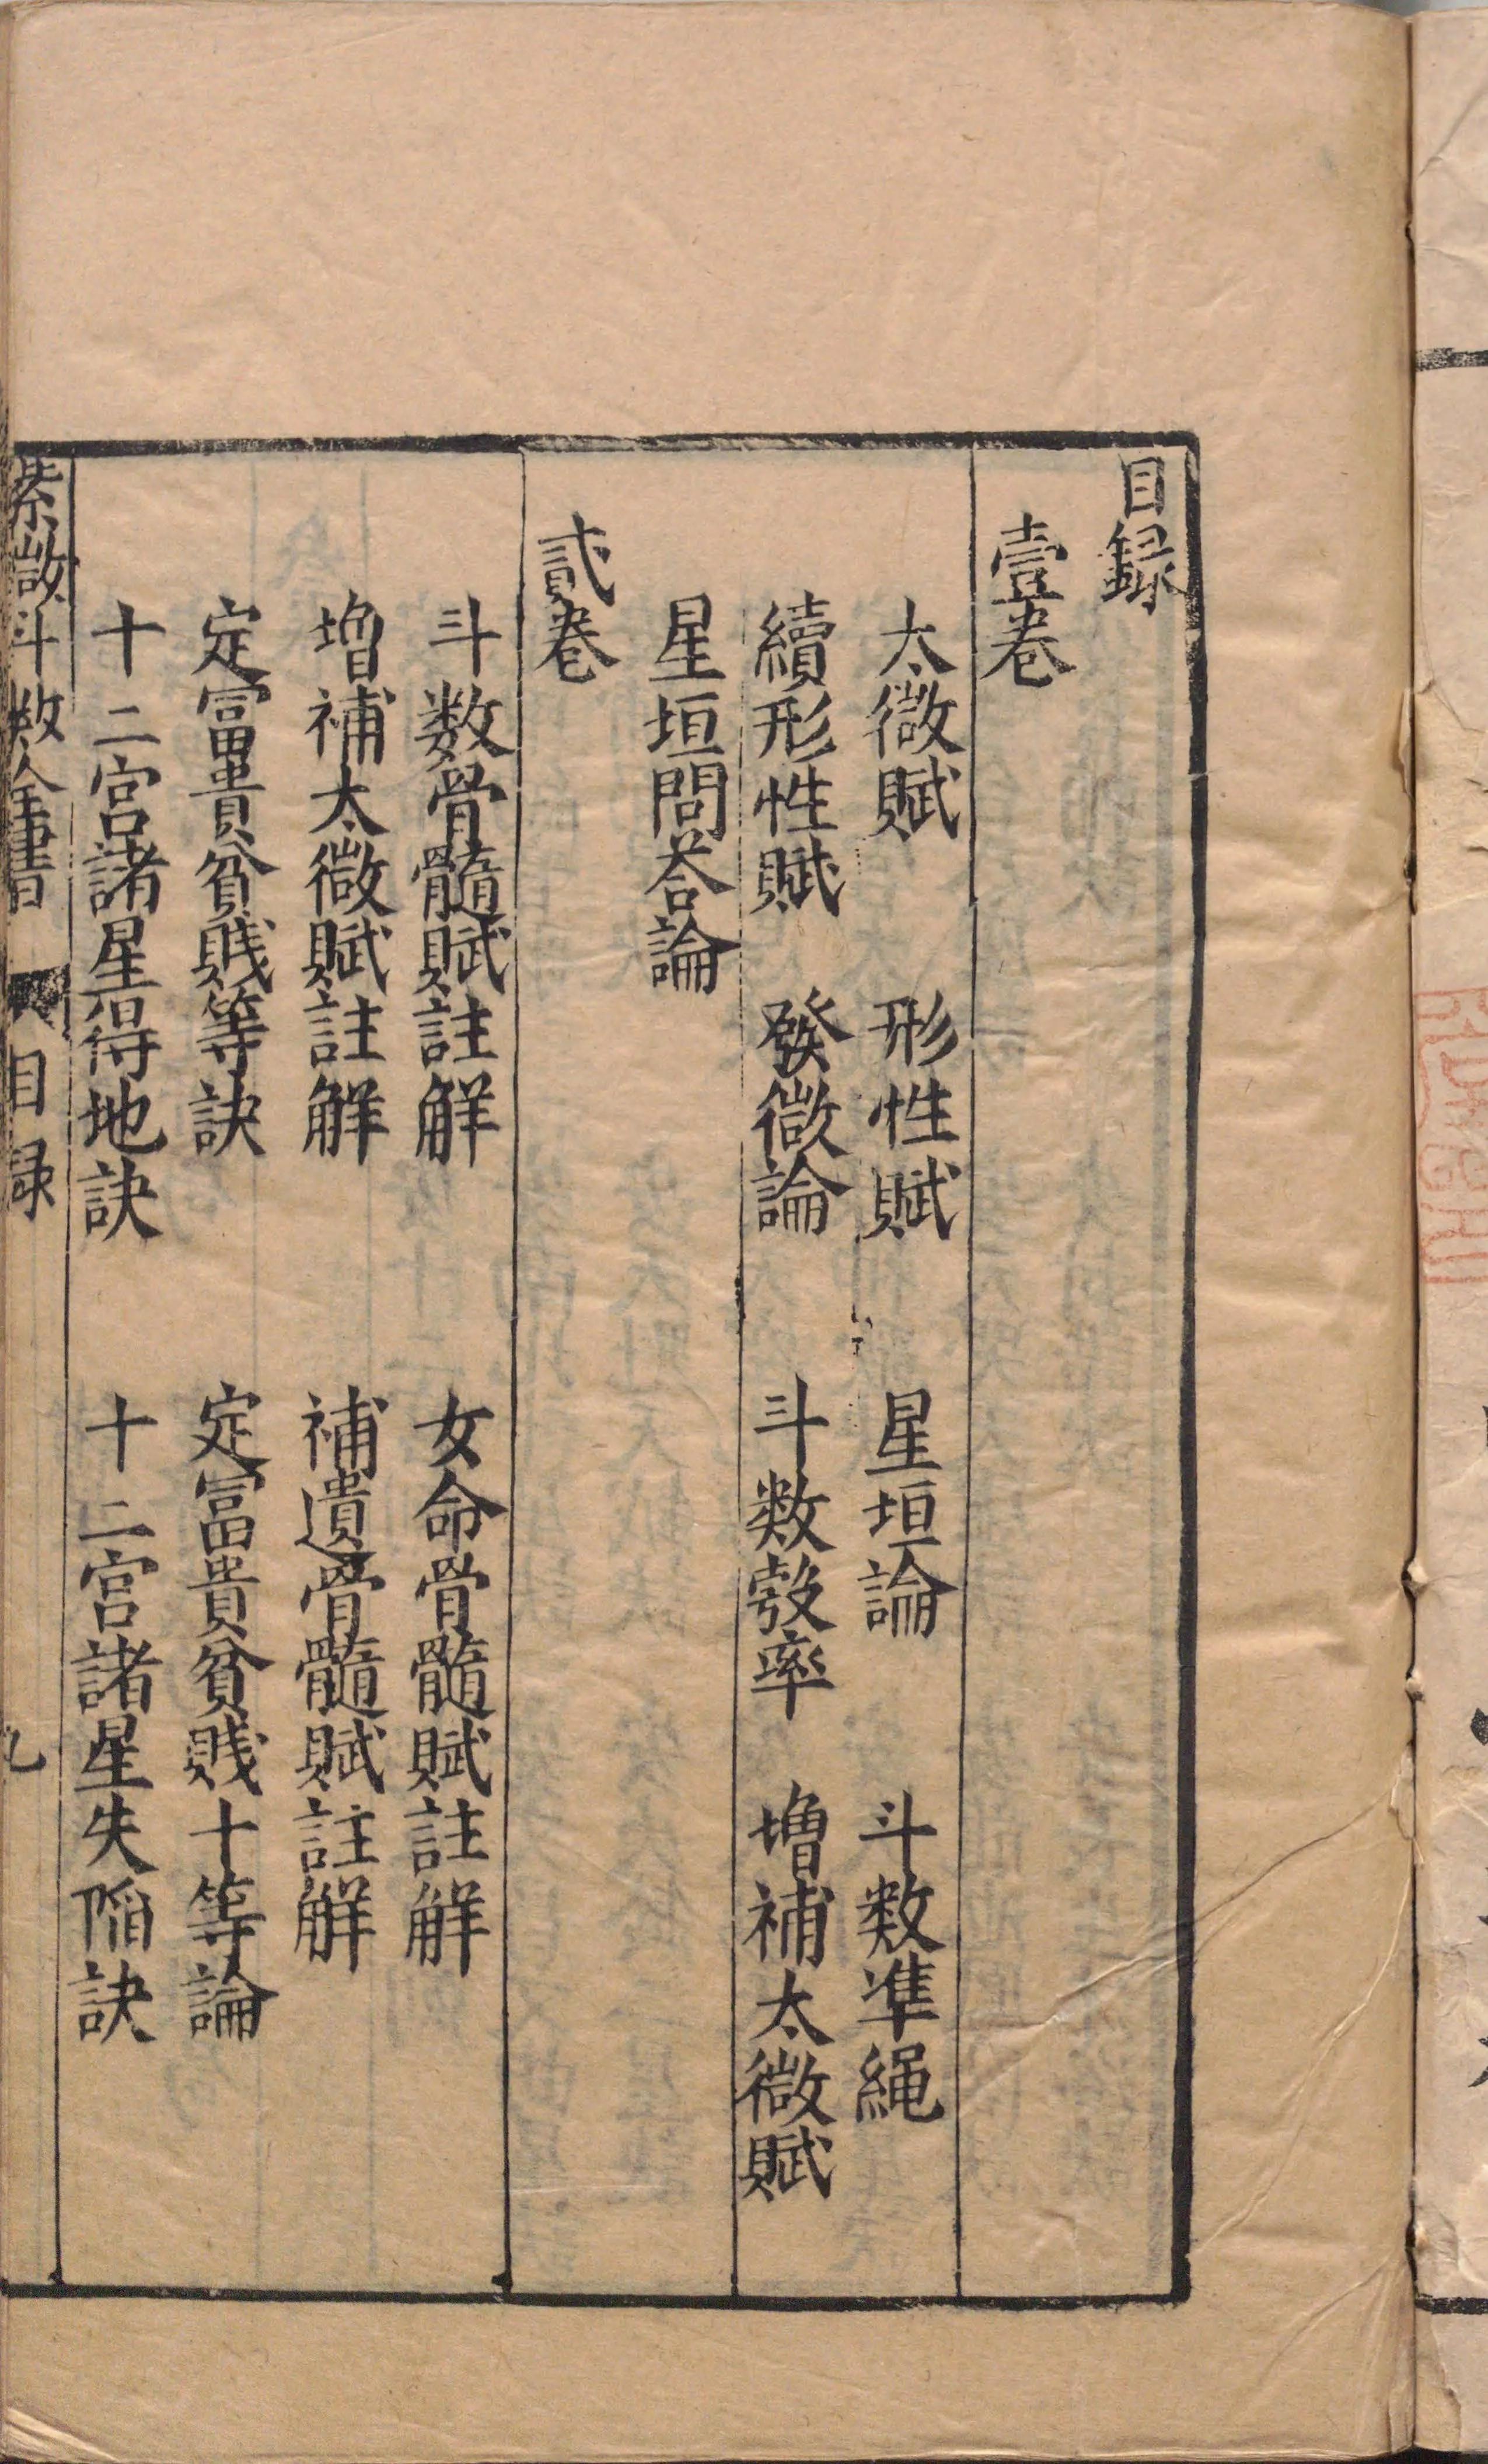 目録
壹卷
太微賦　形性賦　星垣論　斗数凖繩
續形性賦　發微論　斗数彀率　增補太微賦
星垣問荅論
貳卷
斗数骨髓賦註觧　女命骨髓賦註觧
增補太微賦註觧　補遺骨髓賦註觧
定富貴貧賎等訣　定富貴貧賎十等論
十二宮諸星得地訣　十二宮諸星失陥訣
紫微斗数全書　目録　九